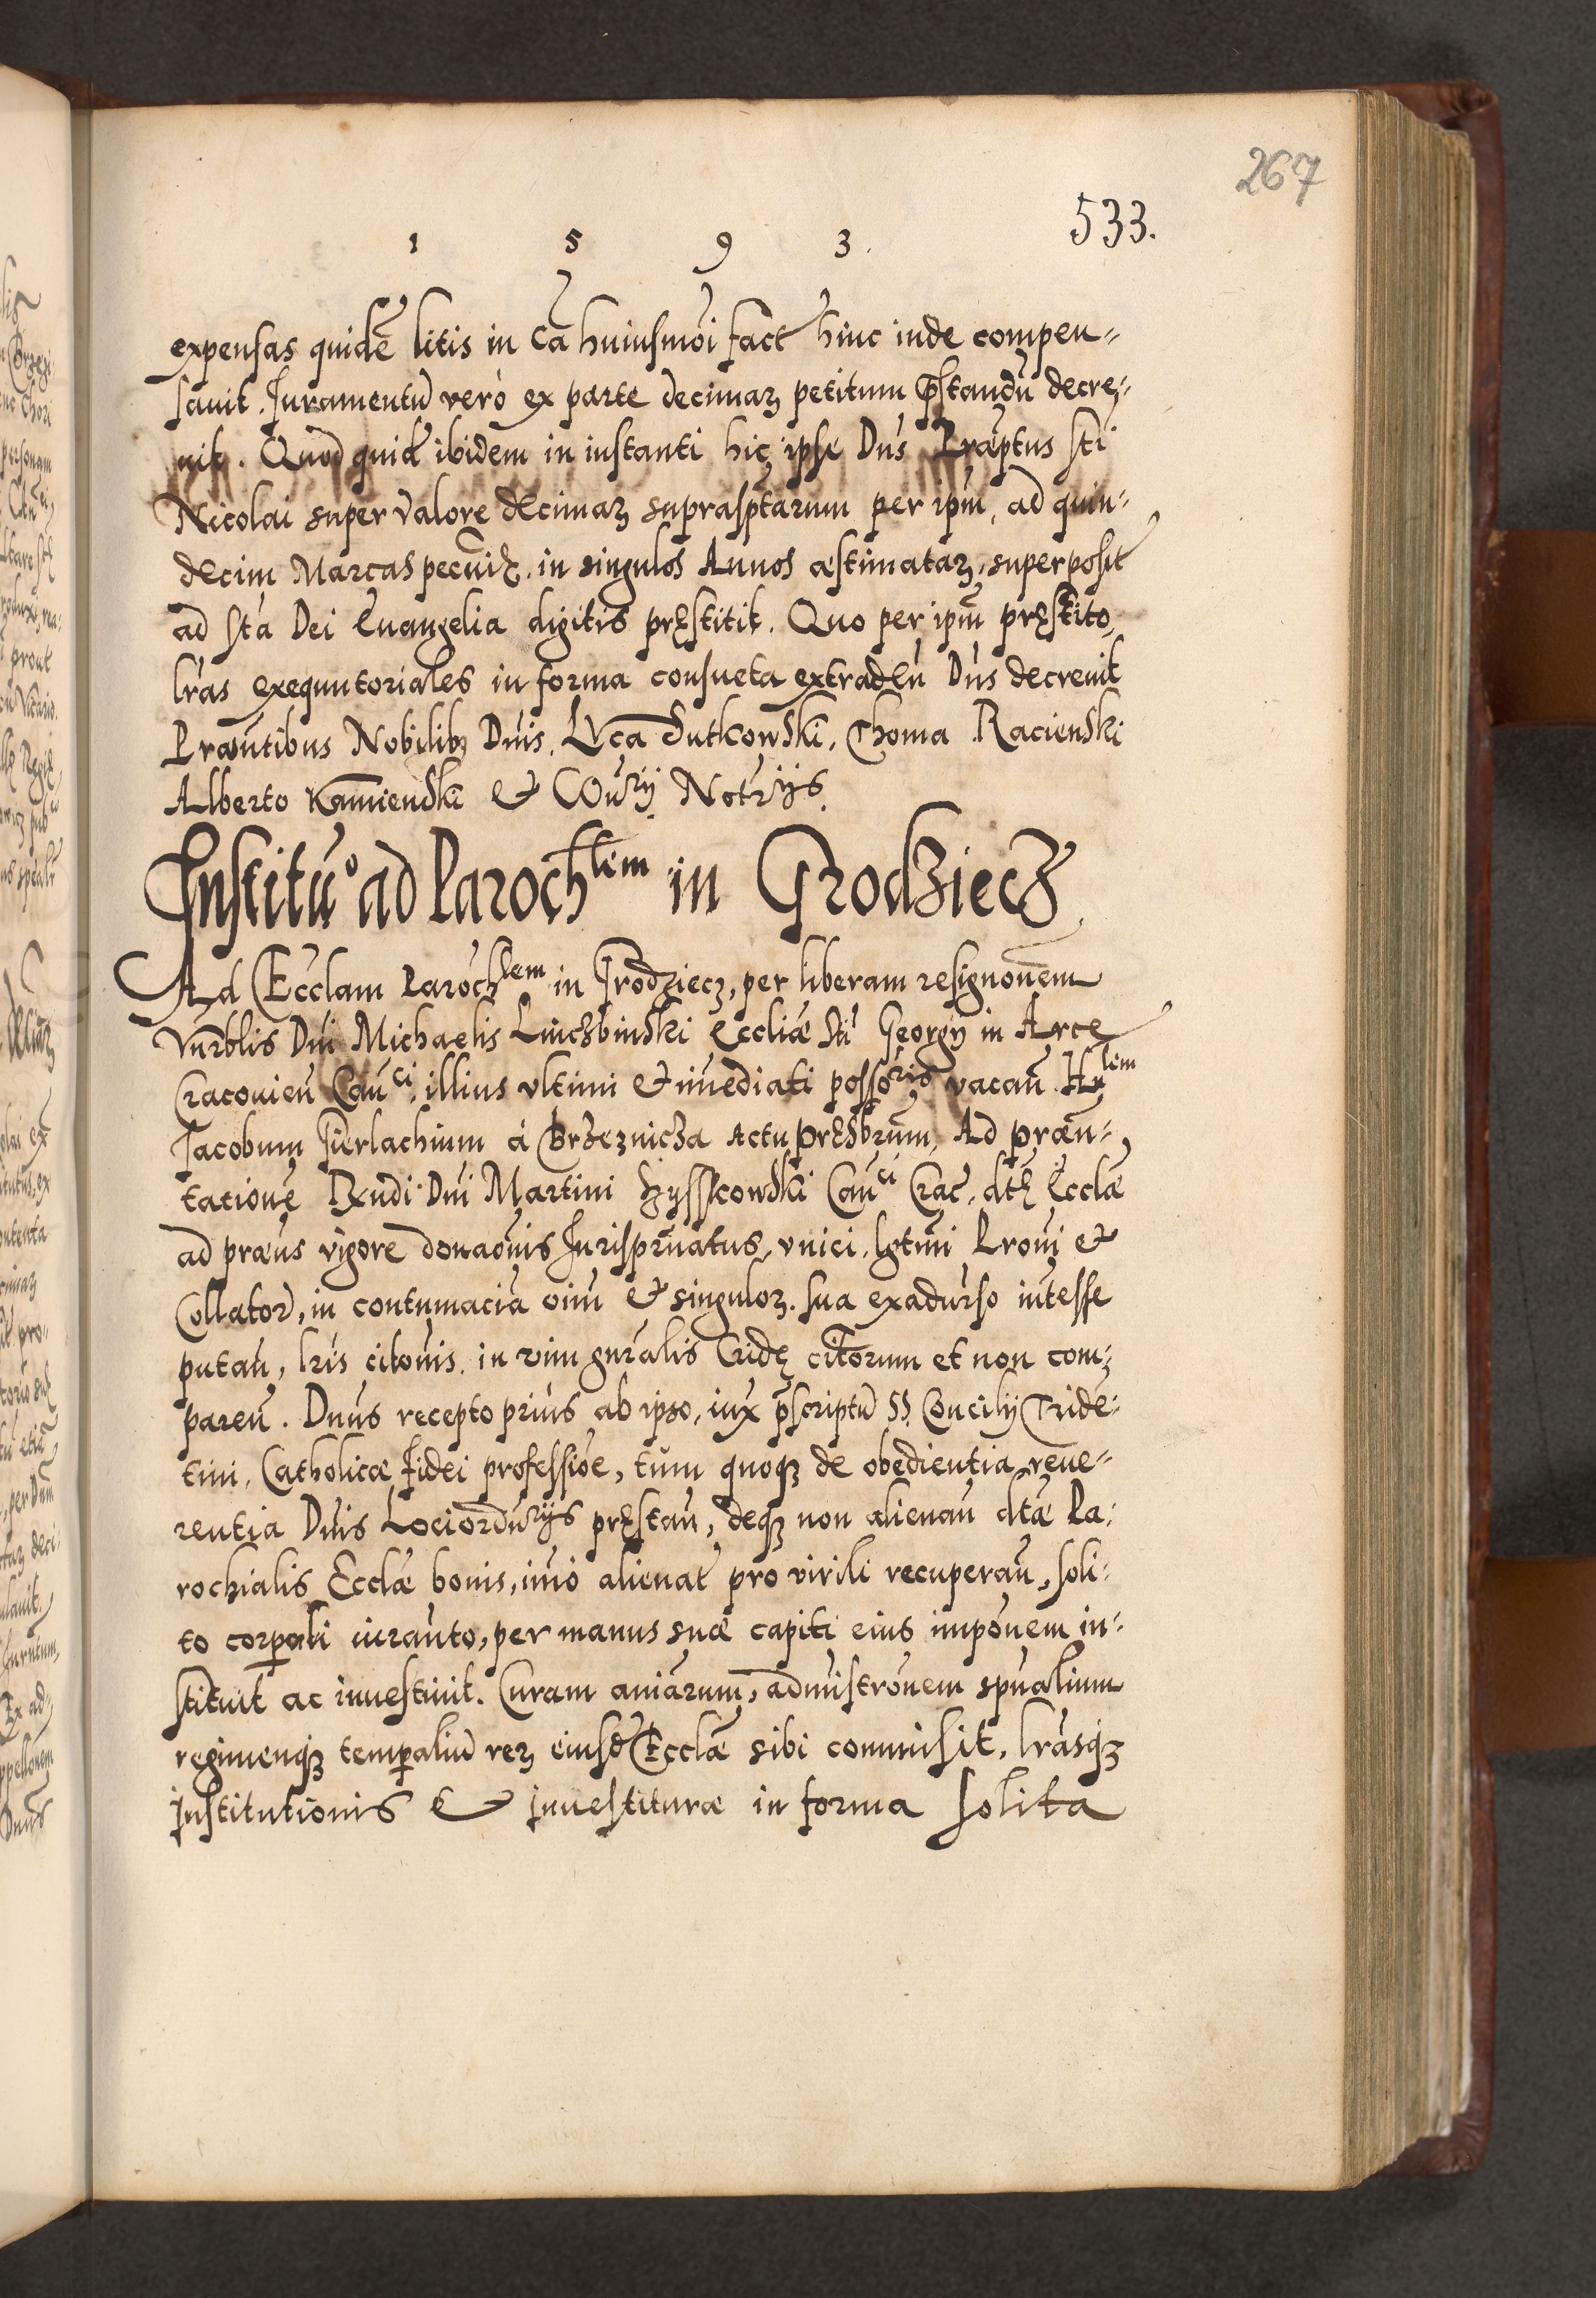 267
533.
1 5 9 3.
expensas quidē litis in Cā huiusmōi fact hinc inde compen-
sauit. Juramentū verò ex parte decimaꝝ petitum p̄standū decre-
uit. Quod quidē ibidem in instanti hic ipse Dn̄s Præptus sti
Nicolai super valore decimaꝝ suprasptarum per ipm̄, ad quin-
decim Marcas pecuniꝝ in singulos Annos æstimataꝝ, superposit
ad stā Dei Euangelia digitis præstitit. Quo per ipm̄ præstito,
lrās exequutoriales in forma consueta extradeń Dn̄s decreuit
Præn̄tibus Nobilibꝫ Dn̄is, Lvca Sutkowski, Thoma Racienski
Alberto Kamienski & Con̄rÿ Notrÿs.
Institū° ad Paroch^lem in Grodziecz
Ad Ecclam Paroch^lem in Grodziecz, per liberam resignōnem
Vnrblis Dn̄i Michaelis Linczbinski Eccliæ Sti Georgÿ in Arce
Cracouień Can^ci, illius vltimi & im̄ediati possōris vacań. Hn^lem
Jacobum Gierlachium à Brzeznicza Actu præsbrūm, Ad præn̄-
tationē Rn̄di Dn̄i Martini Szyszkowski Can^ci Crac. dtæ Ecclæ
ad præn̄s vigore donaōnis Jurisprn̄atus, vnici, lgtmi Prōni &
Collator, in contumaciā oīm & singuloꝝ. sua exadurso int̄esse
putań, lrīs citōnis in vim gnralis Tridę citorum et non com-
pareń. Dn̄us recepto prius ab ipso, iux p̄scriptū SS. Concilÿ Tridē-
tini, Catholicæ fidei professiōe, tūm quoqꝫ de obedientia, reue-
rentia Dn̄is Lociordn̄rÿs præstań, deqꝫ non alienań dtæ Pa-
rochialis Ecclæ bonis, im̄o alienat pro virili recuperań, soli-
to corpoali iuran̄to, per manus suæ capiti eius impōnem in-
stituit ac inuestiuit. Curam aniārum, admistrōnem spn̄alium
regimenqꝫ temp̄aliū reꝝ eiusd Ecclæ sibi commisit, lrāsqꝫ
institutionis & inuestituræ in forma solita